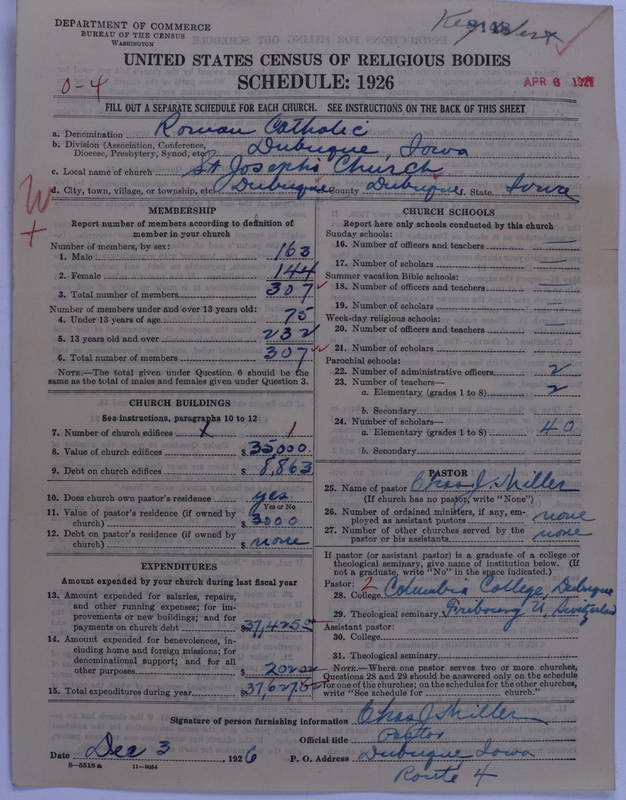 DEPARTMENT OF COMMERCE
BUREAU OF THE CENSUS
WASHINGTON
Key West
UNITED STATES CENSUS OF RELIGIOUS BODIES
SCHEDULE: 1926
0-4
APR 6 1927
FILL OUT A SEPARATE SCHEDULE FOR EACH CHURCH. SEE INSTRUCTIONS ON THE BACK OF THIS SHEET
a. Denomination Roman Catholic
b. Division (Association, Conference, Diocese, Presbytery, Synod, etc. Dubuque, Iowa
c. Local name of church St Josephs Church
d. City, town, village, or township, etc. Dubuque County Dubuque f. State Iowa
MEMBERSHIP
Report number of members according to definition of
member in your church
Number of members, by sex:
1. Male 163
2. Female 144
3. Total number of members 307
Number of members under and over 13 years old:
4. Under 13 years of age 75
5. 13 years old and over 232
6. Total number of members 307
NOTE.—The total given under Question 6 should be the
same as the total of males and females given under Question 3.
CHURCH BUILDINGS
See instructions, paragraphs 10 to 12
7. Number of church edifices 1
8. Value of church edifices $ 35000.
9. Debt on church edifices $ 8,863
10. Does church own pastor's residence yes
Yes or No
11. Value of pastor's residence (if owned by
church) $ 3000
12. Debt on pastor's residence (if owned by
church) $ none
EXPENDITURES
Amount expended by your church during last fiscal year
13. Amount expended for salaries, repairs,
and other running expenses; for im-
provements or new buildings; and for
payments on church debt $ 37,425
14. Amount expended for benevolences, in-
cluding home and foreign missions; for
denominational support; and for all
other purposes $ 202
15. Total expenditures during year $ 37,627
CHURCH SCHOOLS
Report here only schools conducted by this church
Sunday schools:
16. Number of officers and teachers —
17. Number of scholars —
Summer vacation Bible schools:
18. Number of officers and teachers —
19. Number of scholars —
Week-day religious schools:
20. Number of officers and teachers —
21. Number of scholars —
Parochial schools:
22. Number of administrative officers 2
23. Number of teachers—
a. Elementary (grades 1 to 8) 2
b. Secondary
24. Number of scholars—
a. Elementary (grades 1 to 8) 40
b. Secondary
PASTOR
25. Name of pastor Chas J. Miller
(If church has no pastor, write "None")
26. Number of ordained ministers, if any, em-
ployed as assistant pastors none
27. Number of other churches served by the
pastor or his assistants none
If pastor (or assistant pastor) is a graduate of a college or
theological seminary, give name of institution below. (If
not a graduate, write "No" in the space indicated.)
Pastor: 2
28. College Columbia College, Dubuque
29. Theological seminary Freibourg U, Switzerland
Assistant pastor:
30. College
31. Theological seminary
NOTE.—Where one pastor serves two or more churches,
Questions 28 and 29 should be answered only on the schedule
for one of the churches; on the schedules for the other churches,
write "See schedule for church."
Signature of person furnishing information Chas J Miller
Official title Pastor
Date Dec 3, 1926 P. O. Address Dubuque Iowa
8—5518a 11—9054 Route 4